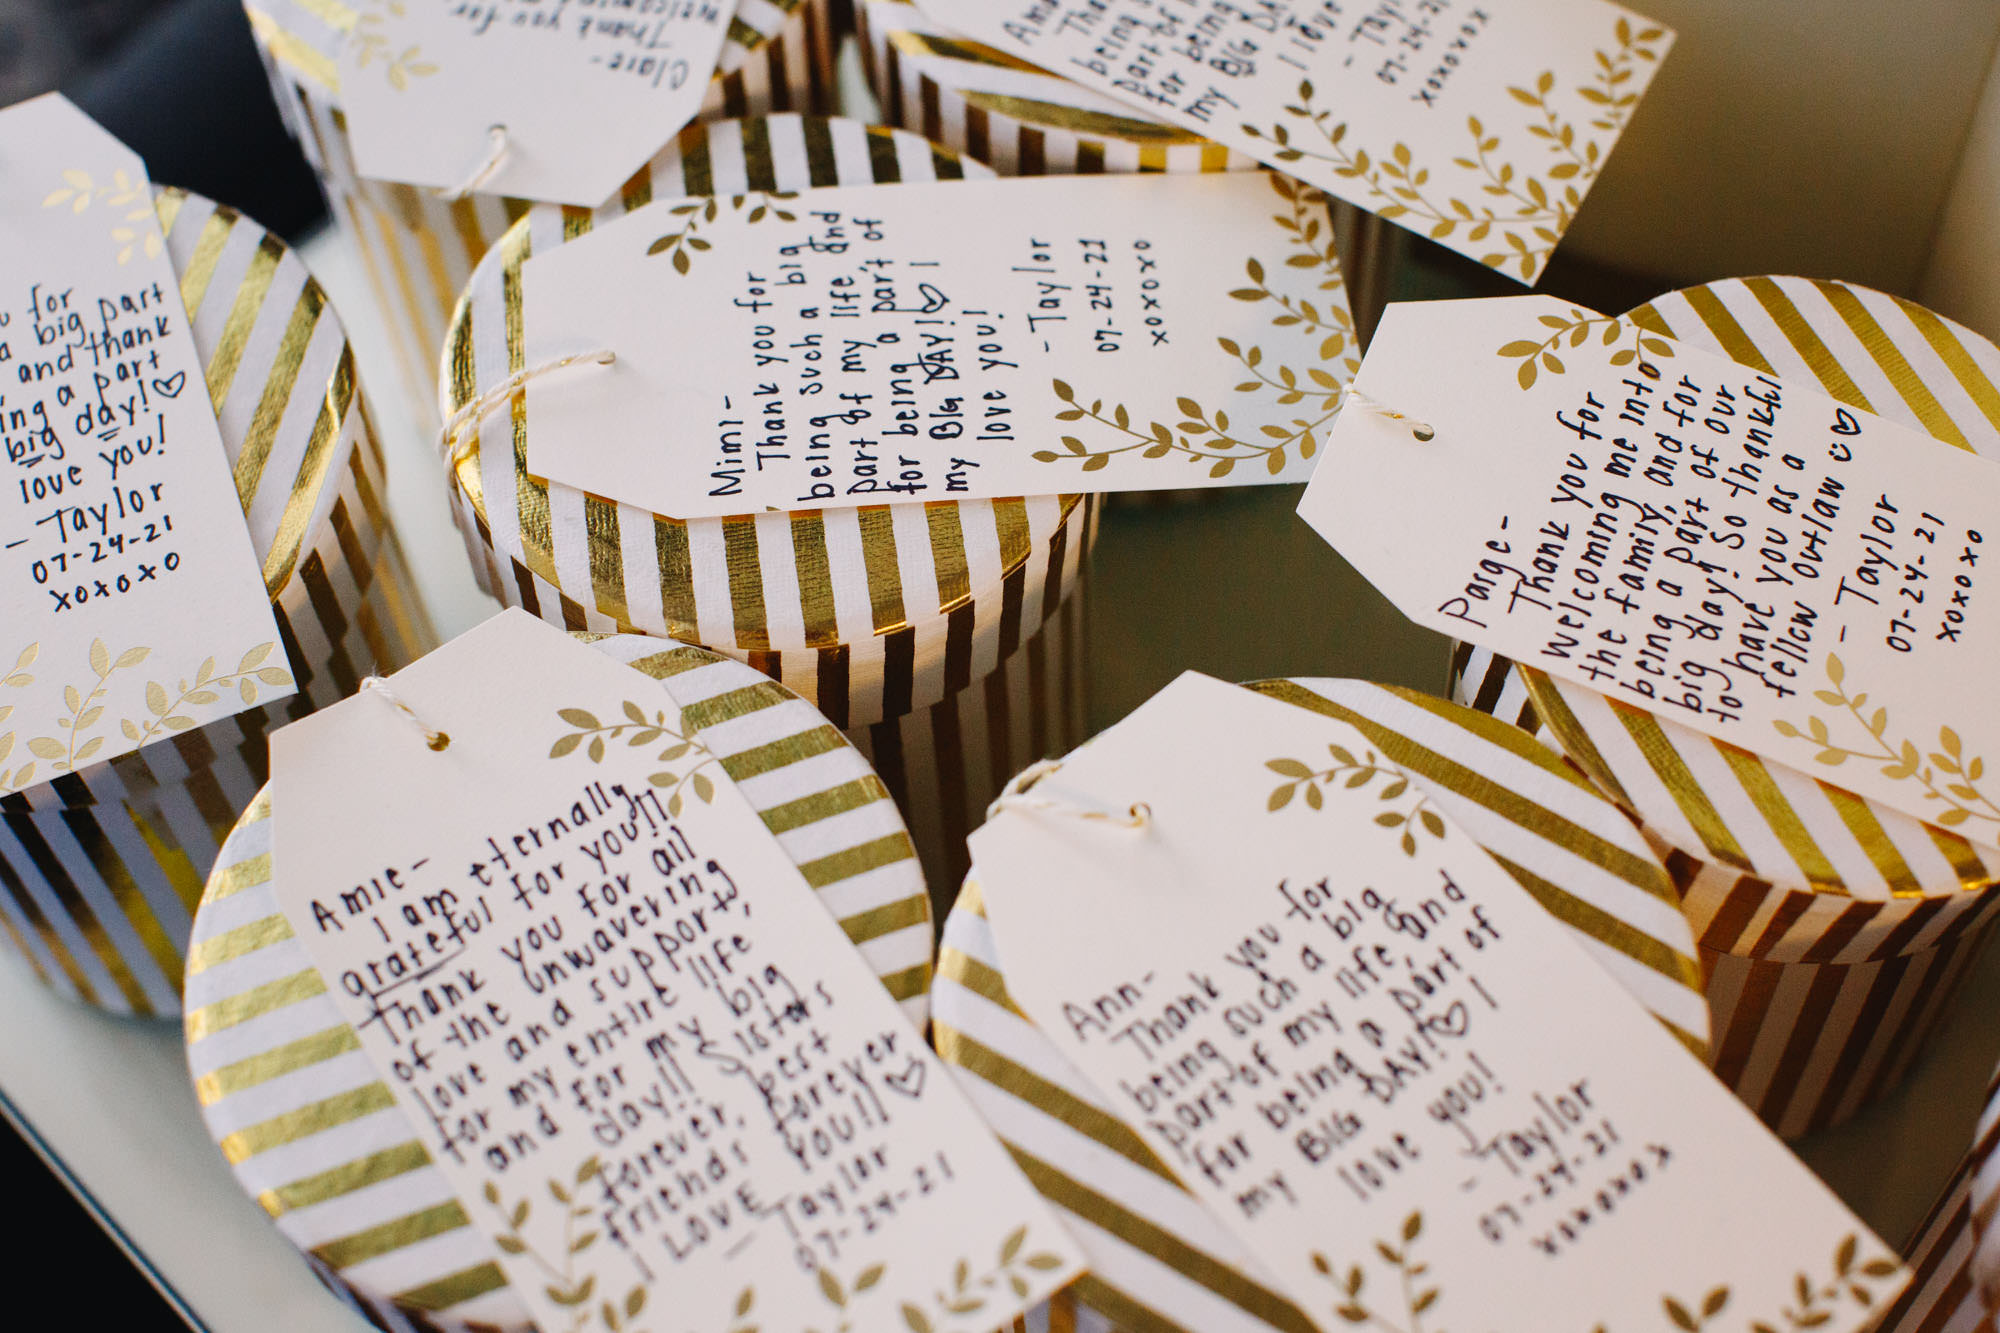 Clare-
Thank you for
welcoming
being
part of
for being
my BIG DA
I love
- Tay
07-24-21
xoxoxoxo
for
a big part
and thank
ing a part
big day! ♡
love you!
- Taylor
07-24-21
xoxoxo
Mimi-
Thank you for
being such a big
part of my life and
for being a part of
my BIG DAY! ♡ I
love you!
- Taylor
07-24-21
xoxoxo
Parge-
Thank you for
welcoming me into
the family, and for
being a part of our
big day! So thankful
to have you as a
fellow outlaw ☺ ♡
- Taylor
07-24-21
xoxoxo
Amie-
I am eternally
grateful for you!!
Thank you for all
of the unwavering
love and support,
for my entire life
and for my big
day!! Sisters
forever, best
friends forever
I LOVE YOU!! ♡
- Taylor
07-24-21
Ann-
Thank you for
being such a big
part of my life, and
for being a part of
my BIG DAY! ♡ I
love you!
- Taylor
07-24-21
xoxoxoxox